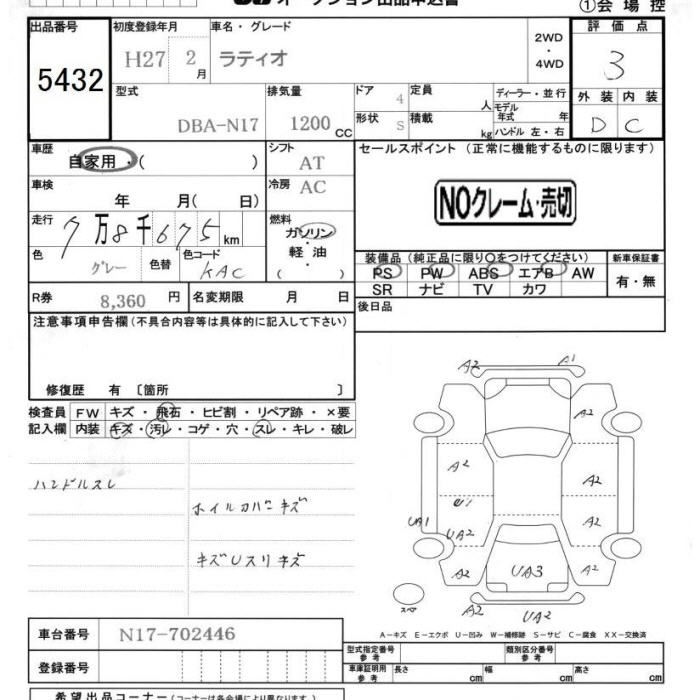 オークション出品申込書
①会場控
出品番号
5432
初度登録年月
H27 2月
車名・グレード
ラティオ
2WD
・
4WD
評価点
3
型式
DBA-N17
排気量
1200 CC
ドア
4
定員
人
形状
S
積載
kg
ディーラー・並行
モデル
年式 年
ハンドル 左・右
外装 内装
D C
車歴
自家用・( )
シフト
AT
セールスポイント (正常に機能するものに限ります)
NOクレーム・売切
車検
年 月( 日)
冷房
AC
走行
7万8千675km
燃料
ガソリン・
軽・油
( )
色
グレー
色替
色コード
KAC
装備品(純正品に限り○をつけてください)
新車保証書
PS PW ABS エアB AW
SR ナビ TV カワ
有・無
R券
8,360 円
名変期限 月 日
後日品
注意事項申告欄(不具合内容等は具体的に記入して下さい)
修復歴 有 〔箇所 〕
検査員
記入欄
FW キズ・飛石・ヒビ割・リペア跡・×要
内装 キズ・汚レ・コゲ・穴・スレ・キレ・破レ
ハンドルスレ
ホイルカバーキズ
キズUスリキズ
A2
A1
A2
A2
A2
U1
UA1
UA2
A2
A2
UA3
A2
A2
A2
UA2
スペア
A－キズ E－エクボ U－凹み W－補修跡 S－サビ C－腐食 XX－交換済
車台番号
N17-702446
登録番号
型式指定番号
参考
類別区分番号
参考
車庫証明用
参考
長さ cm 幅 cm 高さ cm
希望出品コーナー(コーナーは各会場により異なります)